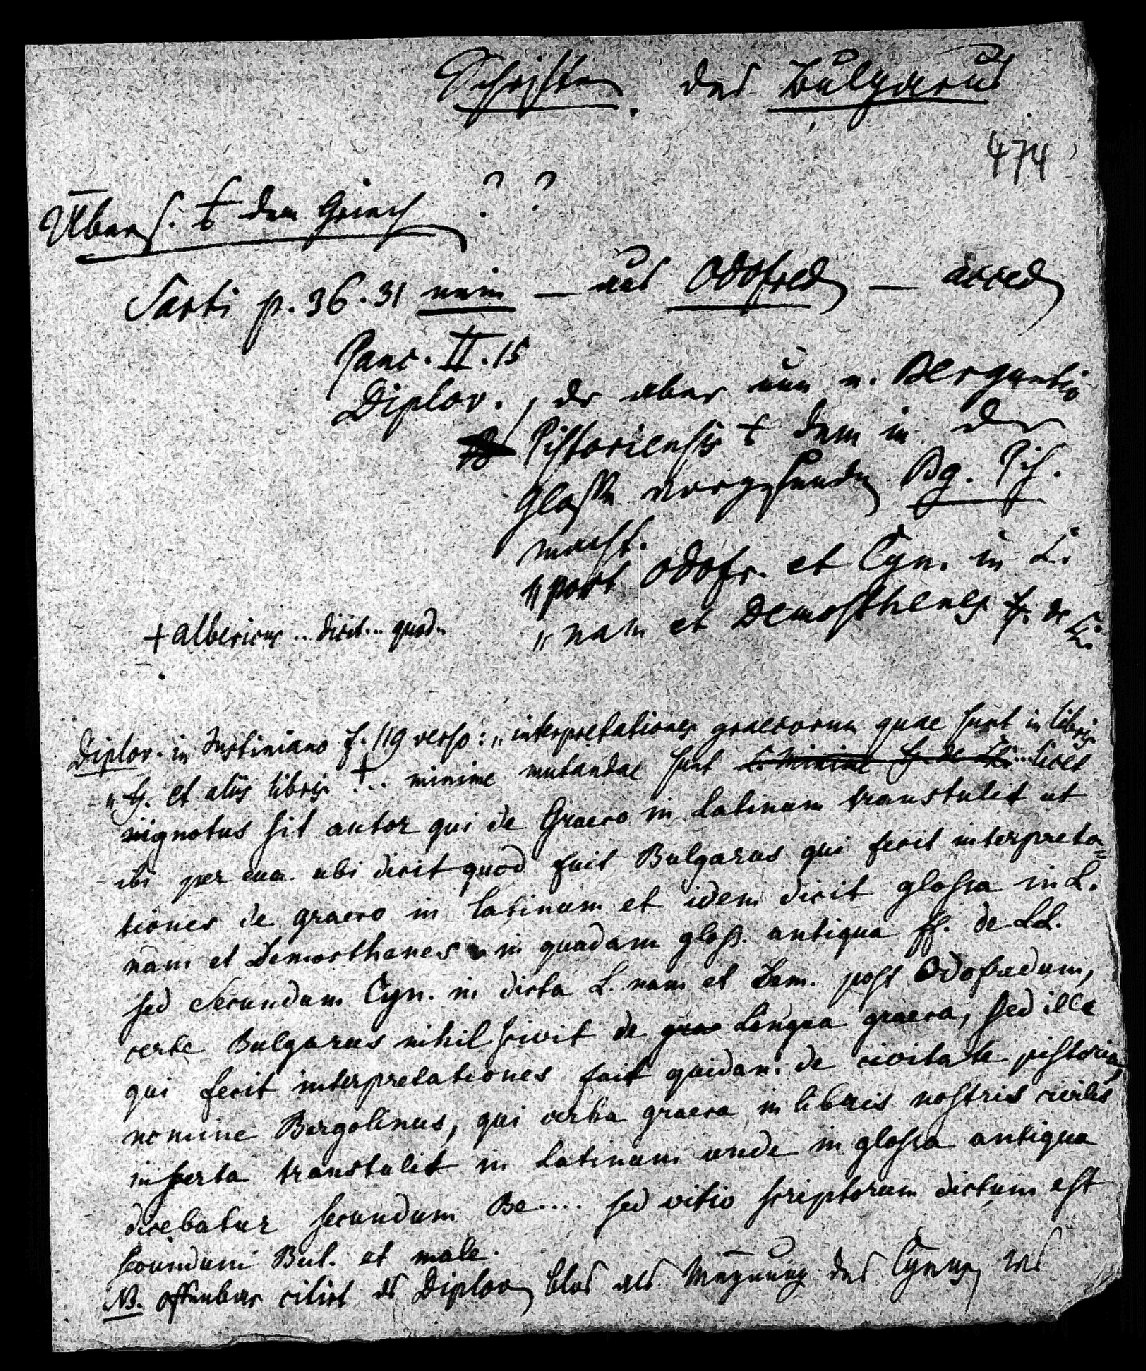 Schriften des Bulgarus
474
Übers. dem Griech ? ?
Sarti p. 36. 31 nein — aus Odofred — accred
Panc. II. 15
Diplov. , der aber nun v. Berguntio
Pistoriensis dem in der
Glosse vorgefundenen Bg. Pis.
macht.
„post Odofr. et Cyn. in L.
„nam et Demosthenes ff. de LL.
+ albericus ... dicit ... quod
Diplov. in Justiniano f. 119 verso: „interpretationes graecorum quae sunt in libris
„ff. et aliis libris +... minime mutandae sunt L. minime ff. de LL. ... licet
ignotus sit autor qui de Graeco in Latinum transtulit ut
ibi per eum ubi dicit quod fuit Bulgarus qui fecit interpreta=
tiones de graeco in latinum et idem dicit glossa in L.
nam et Demosthenes in quadam gloss. antiqua ff. de LL.
sed secundum Cyn. in dicta L. nam et Dem. post Odofredum,
certe Bulgarus nihil scivit de grae Lingua graeca, sed ille
qui fecit interpretationes fuit quidam de civitate pistoria,
nomine Bergolinus, qui verba graeca in libris nostris civilis
inserta transtulit in Latinum unde in glossa antiqua
dicebatur secundum Be.... sed vitio scriptorum dictum est
secundum Bul. et male.
NB. offenbar citirt das Diplov blos als Meynung des Cynus, was